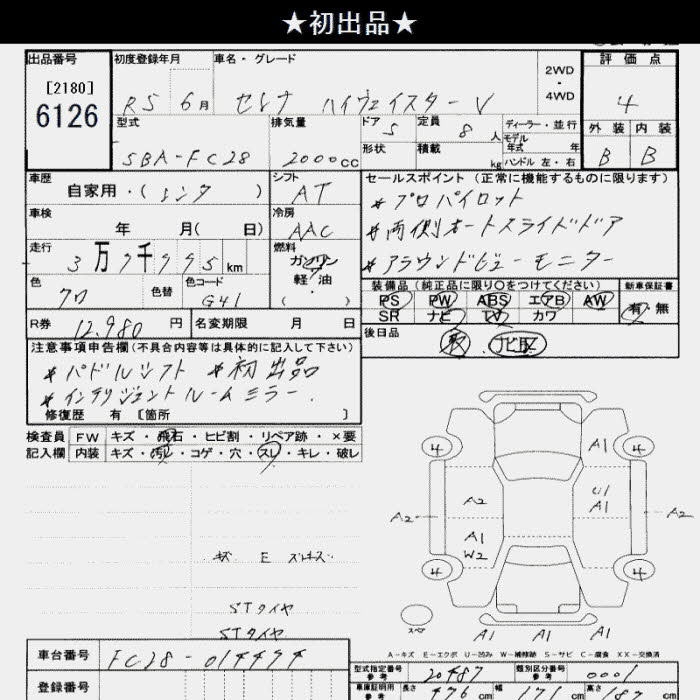 ★初出品★
出品番号 初度登録年月 車名・グレード 評価点
[2180] 2WD
6126 R5 6月 セレナ ハイウェイスターV ・ 4
4WD
型式 排気量 ドア 5 定員 8人 ディーラー・並行 外装 内装
モデル年式 年
SBA-FC28 2000cc 形状 積載 kg ハンドル 左・右 B B
車歴 シフト セールスポイント (正常に機能するものに限ります)
自家用・(レンタ) AT *プロパイロット
車検 冷房 *両側オートスライドドア
年 月( 日) AAC
走行 燃料 *アラウンドビューモニター
3万7千995km ガソリン
色 色替 色コード 軽・油 装備品 (純正品に限り○をつけてください) 新車保証書
クロ G41 ・( ) PS PW ABS エアB AW 有・無
SR ナビ TV カワ
R券 12,980円 名変期限 月 日 後日品
取 ナビ取
注意事項申告欄 (不具合内容等は具体的に記入して下さい)
*パドルシフト *初出品
*インテリジェントルームミラー.
修復歴 有 〔箇所 〕
検査員 FW キズ・飛石・ヒビ割・リペア跡・×要
記入欄 内装 キズ・汚レ・コゲ・穴・スレ・キレ・破レ
4 A1 4
A2 A2 U1 A1 A2
A1
W2
4 4
キズ E
STタイヤ
STタイヤ
スペア A1 A1 A1
A-キズ E-エクボ U-凹み W-補修跡 S-サビ C-腐食 XX-交換済
車台番号 FC28-014474 型式指定番号 参考 20487 類別区分番号 参考 0001
登録番号 車庫証明用 参考 長さ 476cm 幅 171cm 高さ 187cm